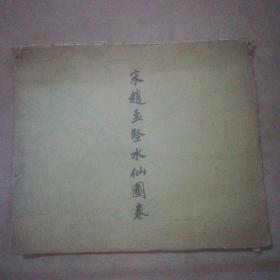 宋趙孟堅水仙圖卷